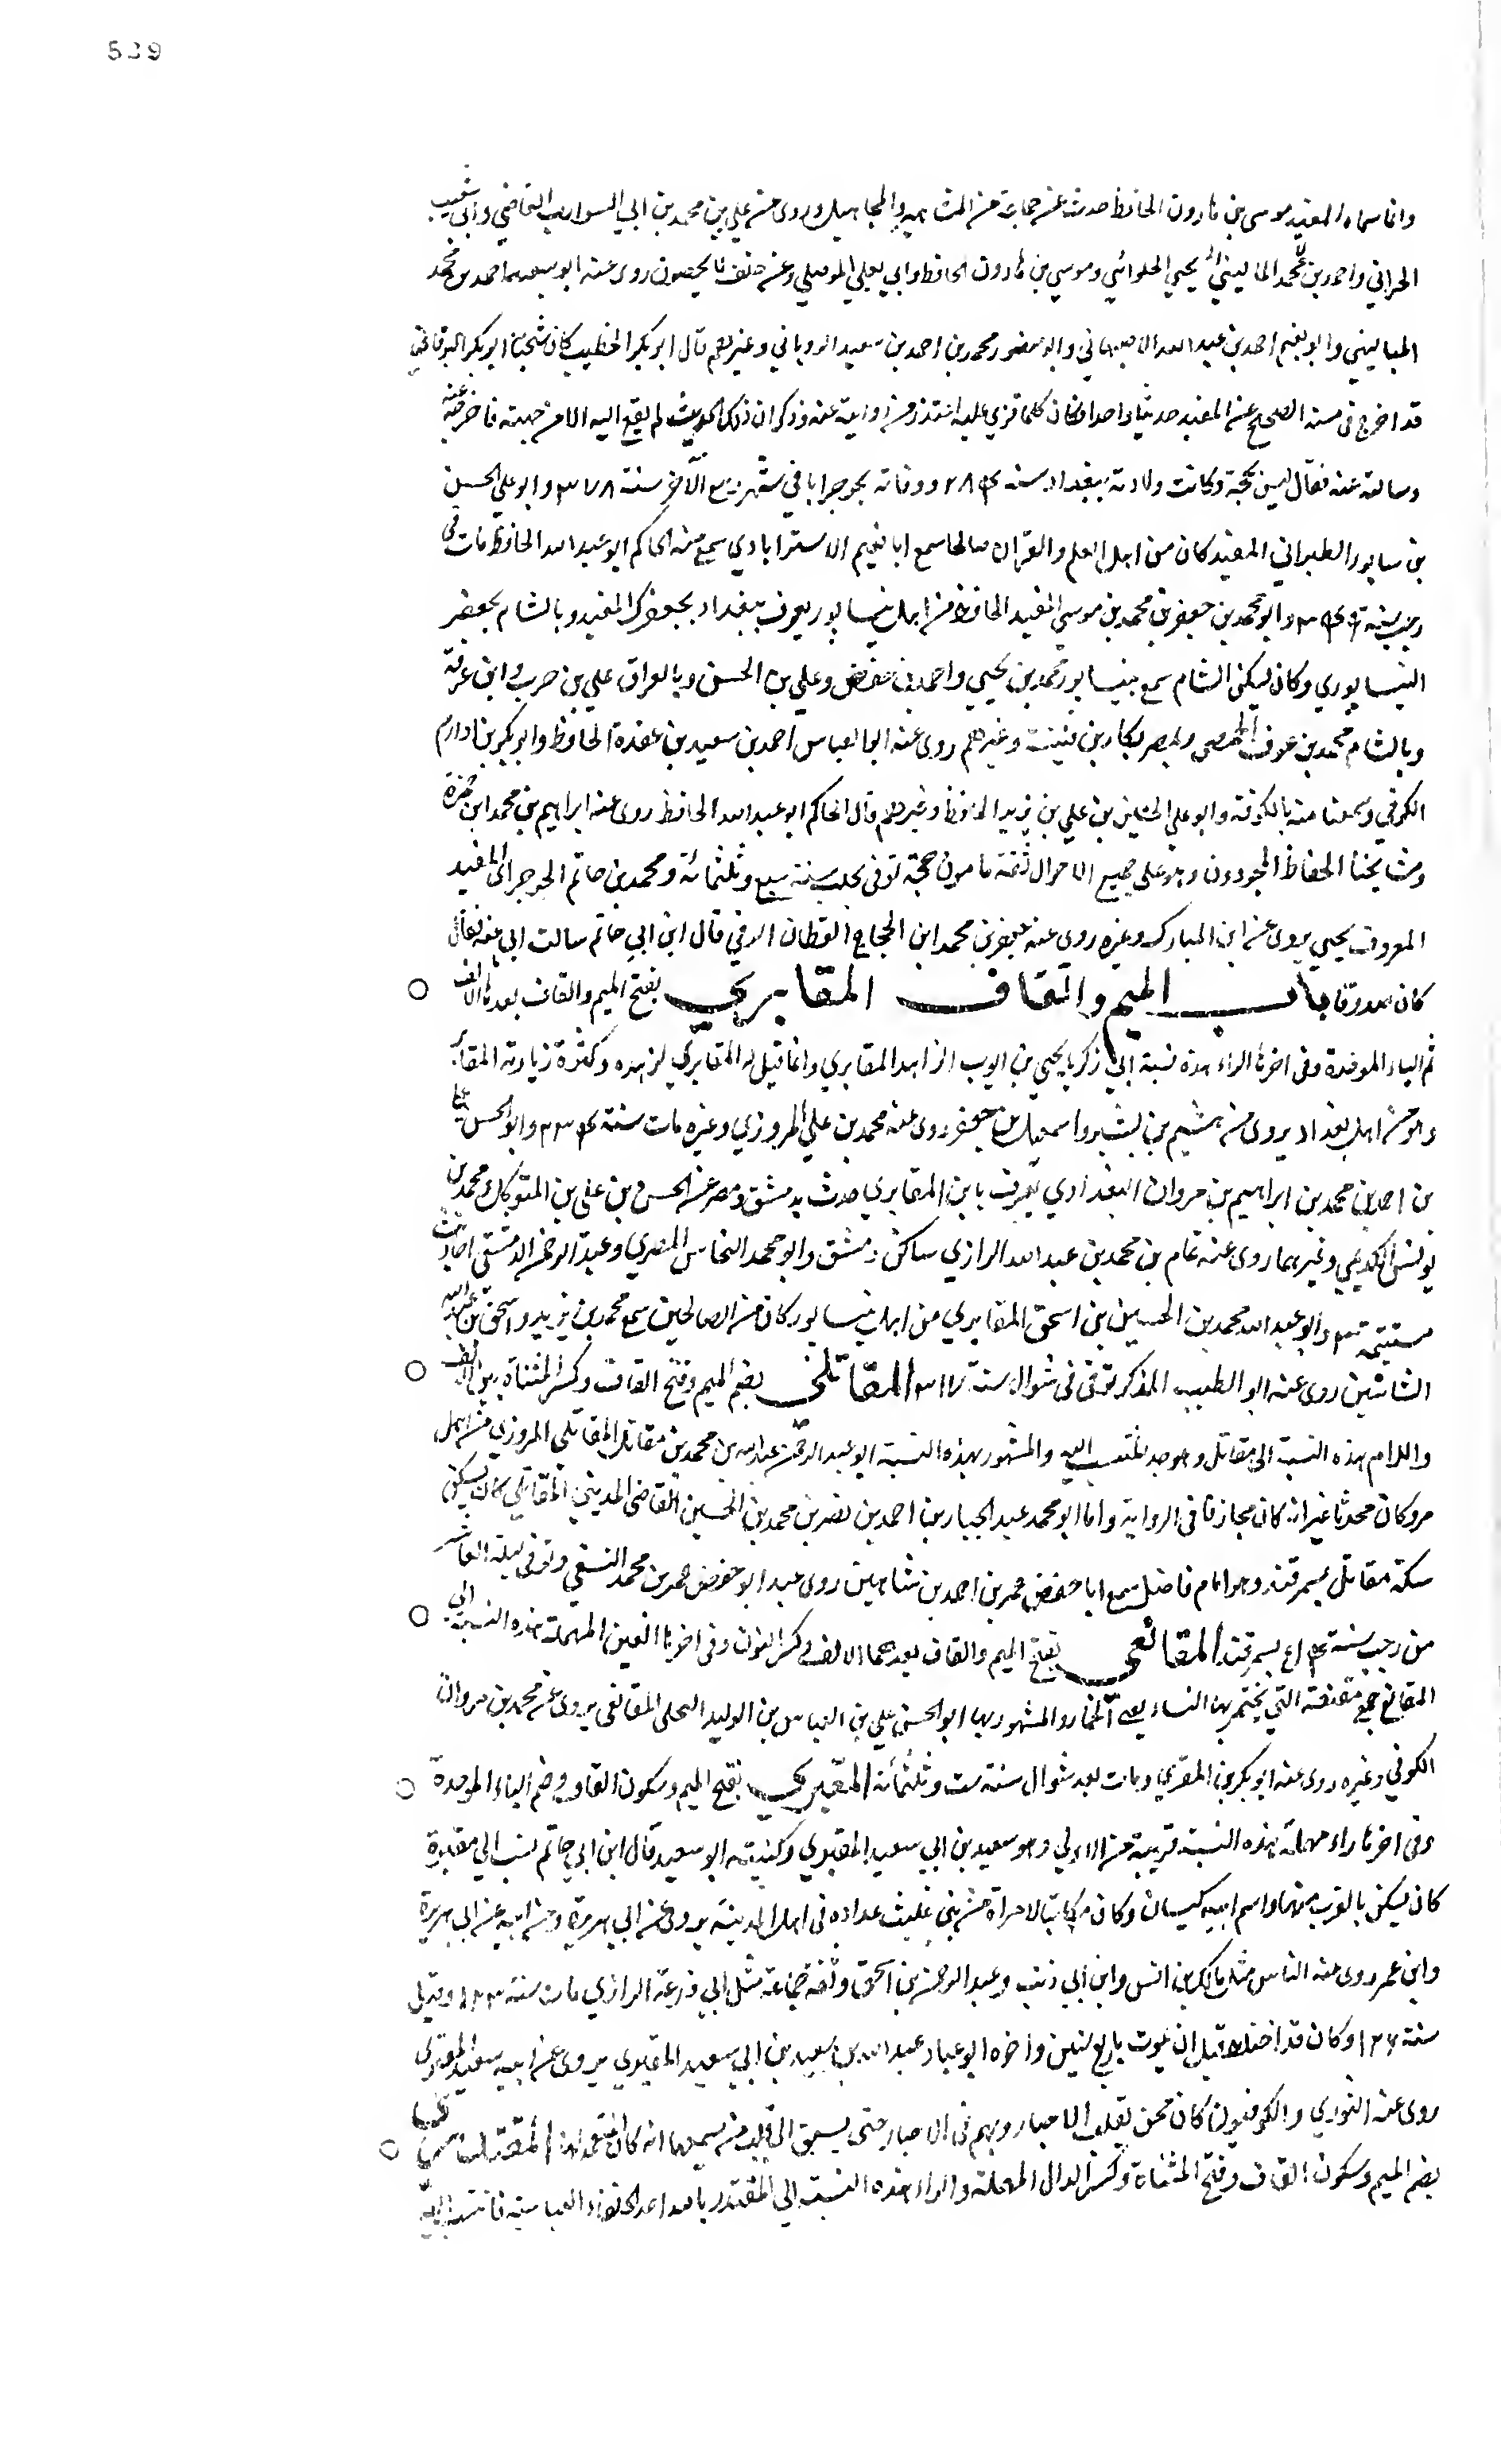 539
وانما سماه المفيد موسى بن هارون الحافظ حدث عن جماعة من المشاهير والمجاهيل وروى عن علي بن محمد بن ابي الشوارب القاضي وابي شعيب
الحراني واحمد بن محمد الماليني يحيى الحلواني وموسى بن هارون الحافظ وابي يعلى الموصلي وعن خلق لا يحصون روى عنه ابو سعيد احمد بن محمد
الماليني وابو نعيم احمد بن عبد الله الاصبهاني وابو منصور محمد بن احمد بن سعيد الروياني وغيرهم قال ابو بكر الخطيب كان شيخنا ابو بكر البرقاني
قد اخرج في مسنده الصحيح عن المفيد حديثا واحدا فكان كلما قرئ عليه اعتذر من روايته عنه وذكر ان ذلك الحديث لم يقع اليه الا من جهته فاخرجه عنه
وسالته عنه فقال ليس بحجة وكانت ولادته ببغداد سنة ٢٨٤ ووفاته بجرجرايا في شهر ربيع الآخر سنة ٣٧٨ وابو علي الحسن
بن سابور الطبراني المفيد كان من اهل العلم والقرآن صالحا سمع ابا نعيم الاستراباذي سمع منه الحاكم ابو عبد الله الحافظ مات في
رجب سنة وابو محمد بن جعفر بن محمد بن موسى المفيد الحافظ من اهل نيسابور يعرف ببغداد بجعفرك المفيد وبالشام بجعفر
النيسابوري وكان يسكن الشام سمع بنيسابور محمد بن يحيى واحمد بن حفص وعلي بن الحسن وبالعراق علي بن حرب وابن عرفة
وبالشام محمد بن عوف الحمصي وبمصر بكار بن قتيبة وغيرهم روى عنه ابو العباس احمد بن سعيد بن عقدة الحافظ وابو بكر بن ادارم
الكوفي وسمعنا منه بالكوفة وابو علي الحسين بن علي بن يزيد الحافظ وغيرهم قال الحاكم ابو عبد الله الحافظ روى عنه ابراهيم بن محمد ابن حمزة
ومشايخنا الحفاظ المجودون وهو على جميع الاحوال ثقة مامون حجة توفي بحلب سنة سبع وثلثمائة ومحمد بن حاتم الجرجرائي المفيد
المعروف بحبي يروى عن ابن المبارك وغيره روى عنه جعفر بن محمد ابن الحجاج القطان الرقي قال ابن ابي حاتم سالت ابي عنه فقال
كان صدوقا باب الميم والقاف المقابري بفتح الميم والقاف بعدها الالف
ثم الباء الموحدة وفي اخرها الراء هذه نسبة ابي زكريا يحيى بن ايوب الزاهد المقابري وانما قيل له المقابري لزهده وكثرة زيارته المقابر
وهو من اهل بغداد يروى عن هشيم بن بشير واسمعيل بن جعفر روى عنه محمد بن علي المروزي وغيره مات سنة ٢٣٤ وابو الحسن علي
بن احمد بن محمد بن ابراهيم بن مروان البغدادي يعرف بابن المقابري حدث بدمشق ومصر عن الحسن بن علي بن المتوكل ومحمد بن
يونس الكديمي وغيرهما روى عنه تمام بن محمد بن عبد الله الرازي ساكن دمشق وابو محمد النحاس المصري وعبد الرحمن الدمشقي احاديث
مستقيمة وابو عبد الله محمد بن الحسين بن اسحق المقابري من اهل نيسابور كان من الصالحين سمع محمد بن يزيد واسحق بن عبد الله
الشاشين روى عنه ابو الطيب المذكر توفي في شوال سنة ٣١٧ المقاتلي بضم الميم وفتح القاف وكسر المثناة بعد الالف
واللام هذه النسبة الى مقاتل وهو جد المنتسب اليه والمشهور بهذه النسبة ابو عبد الرحمن عبد الله بن محمد بن مقاتل المقاتلي المروزي من اهل
مرو كان محدثا غير انه كان مجازفا في الرواية واما ابو محمد عبد الجبار بن احمد بن نصر بن محمد بن الحسين القاضي المديني المقاتلي كان يسكن
سكة مقاتل بسمرقند وهو امام فاضل سمع ابا حفص عمر بن احمد بن شاهين روى عنه ابو حفص عمر بن محمد النسفي وتوفي ليلة العاشر
من رجب سنة بسمرقند المقانعي بفتح الميم والقاف بعدهما الالف وكسر النون وفي اخرها العين المهملة هذه النسبة الى
المقانع جمع مقنعة التي يختمر بها النساء يعني الخمار والمشهور بها ابو الحسن علي بن العباس بن الوليد البجلي المقانعي يروى عن محمد بن مروان
الكوفي وغيره روى عنه ابو بكر بن المقري ومات بعد شوال سنة ست وثلثمائة المقبري بفتح الميم وسكون القاف وضم الباء الموحدة
وفي اخرها راء مهملة هذه النسبة قريبة من الاولى وهو سعيد بن ابي سعيد المقبري وكنيته ابو سعيد قال ابن ابي حاتم نسب الى مقبرة
كان يسكن بالقرب منها واسم ابيه كيسان وكان مكاتبا لامراة من بني ليث عداده في اهل المدينة يروى عن ابي هريرة وعن ابيه عن ابي هريرة
وابن عمر روى عنه الناس مثل مالك بن انس وابن ابي ذئب وعبد الرحمن بن اسحق وثقه جماعة مثل ابي زرعة الرازي مات سنة ١٢٣ وقيل
سنة ١٢٦ وكان قد اختلط قبل ان يموت باربع سنين واخره ابو عباد عبد الله بن سعيد بن ابي سعيد المقبري يروى عن ابيه سعيد المقبري
روى عنه الثوري والكوفيون كان ممن يقلب الاخبار ويهم في الاخبار حتى يسبق الى قلب من يسمعها انه كان المتعمد لها المقتدري
بضم الميم وسكون القاف وفتح المثناة وكسر الدال المهملة والراء هذه النسبة الى المقتدر بالله احد الخلفاء العباسية فانتسب اليه